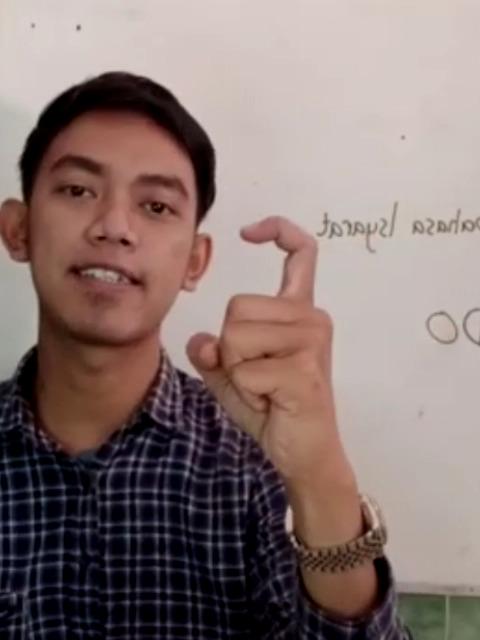 Bahasa Isyarat
DO